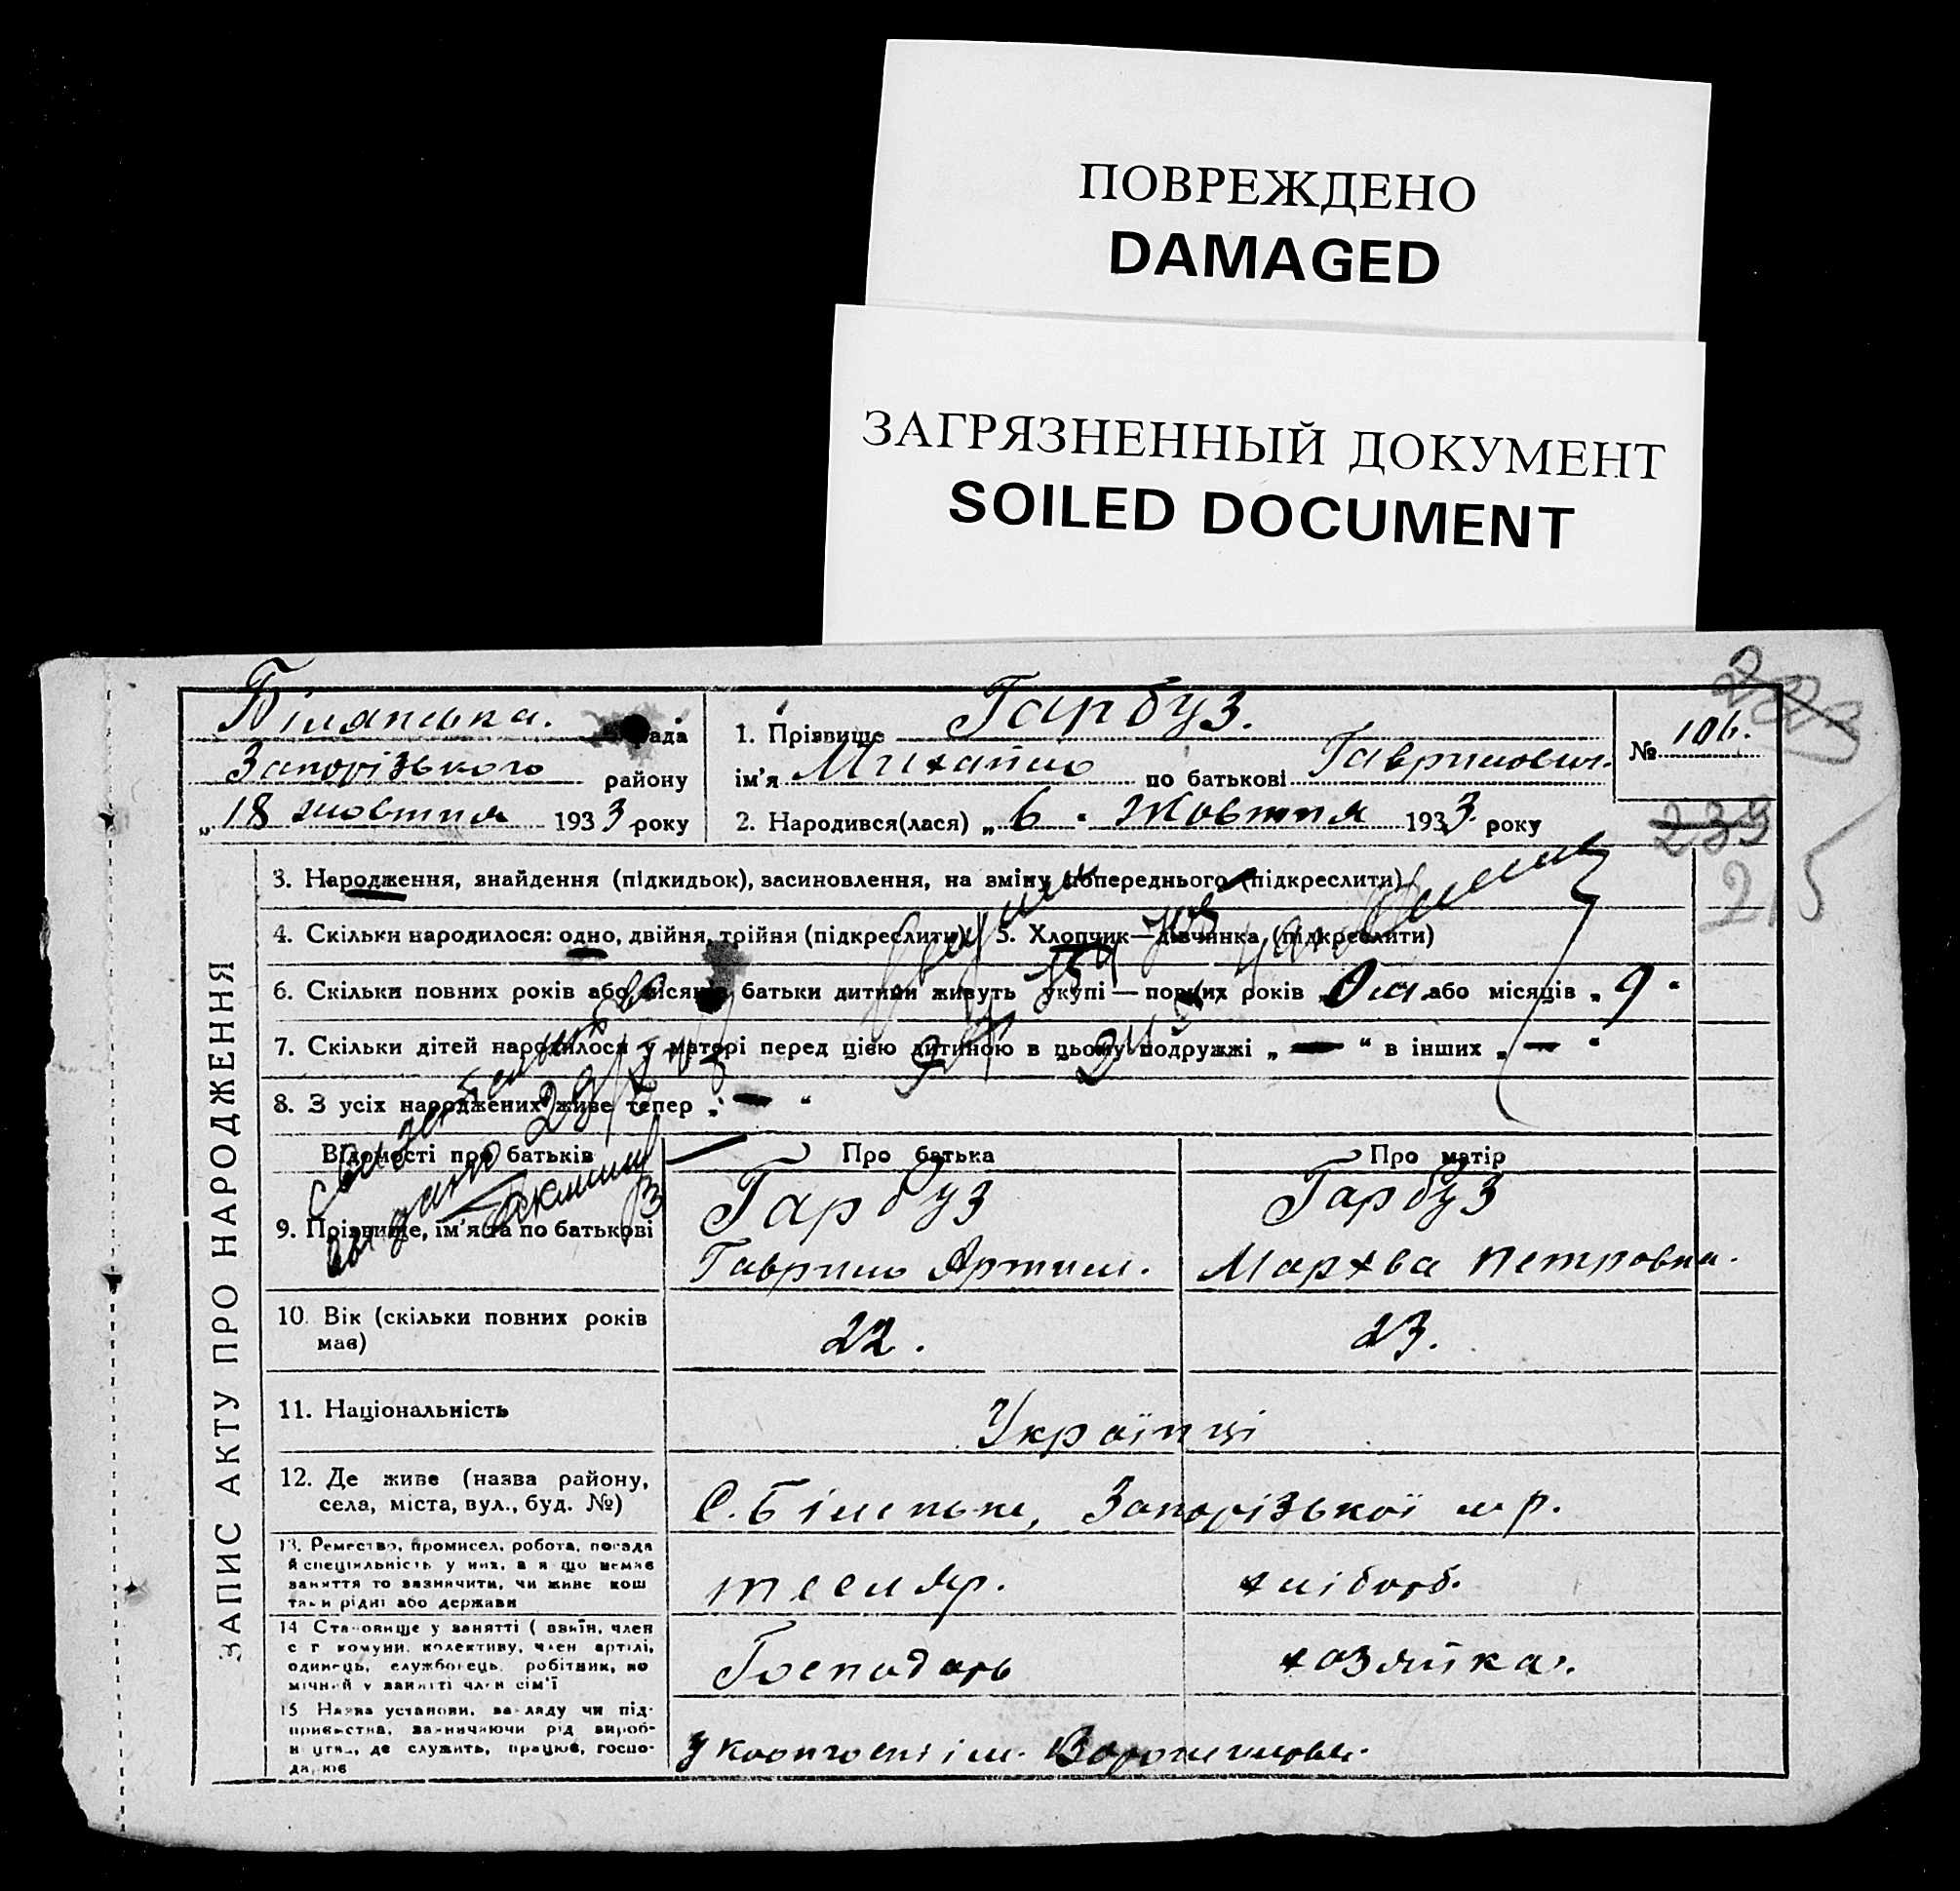 ПОВРЕЖДЕНО
DAMAGED
ЗАГРЯЗНЕННЫЙ ДОКУМЕНТ
SOILED DOCUMENT
ЗАПИС АКТУ ПРО НАРОДЖЕННЯ
рада
Запорізького району
„18 жовтня 1933 року
1. Прізвище Гарбуз.
ім'я Михайло по батькові Гаврилович.
2. Народився(лася) „6. Жовтня 1933 року
№ 106.
239
215
3. Народження, знайдення (підкидьок), засиновлення, на зміну попереднього (підкреслити)
4. Скільки народилося: одно, двійня, трійня (підкреслити) 5. Хлопчик—дівчинка (підкреслити)
6. Скільки повних років або місяців батьки дитини живуть укупі — повних років або місяців „9"
7. Скільки дітей народилося у матері перед цією дитиною в цьому подружжі „ — “ в інших „ — “
8. З усіх народжених живе тепер „ — “
выдано
Відомості про батьків Про батька Про матір
9. Прізвище, ім'я та по батькові Гарбуз Гарбуз
Гаврило Артим. Мархва Петровна.
10. Вік (скільки повних років має) 22. 23.
11. Національність Українці
12. Де живе (назва району, села, міста, вул., буд. №) С. Біленьке, Запорізької м р.
13. Ремество, промисел, робота, посада
й спеціяльність у них, а якщо немає
заняття то зазначити, чи живе кош
тами рідні або держави
тесляр. хлібороб.
14 Становище у занятті (
с г комуни, колективу, член артілі,
одинець, службовець, робітник, по
мічний у занятті член сім'ї
Господарь хозяйка.
15 Назва установи, закладу чи під-
приємства, зазначаючи рід вироб-
ництва, де служить, працює, госпо-
дарює